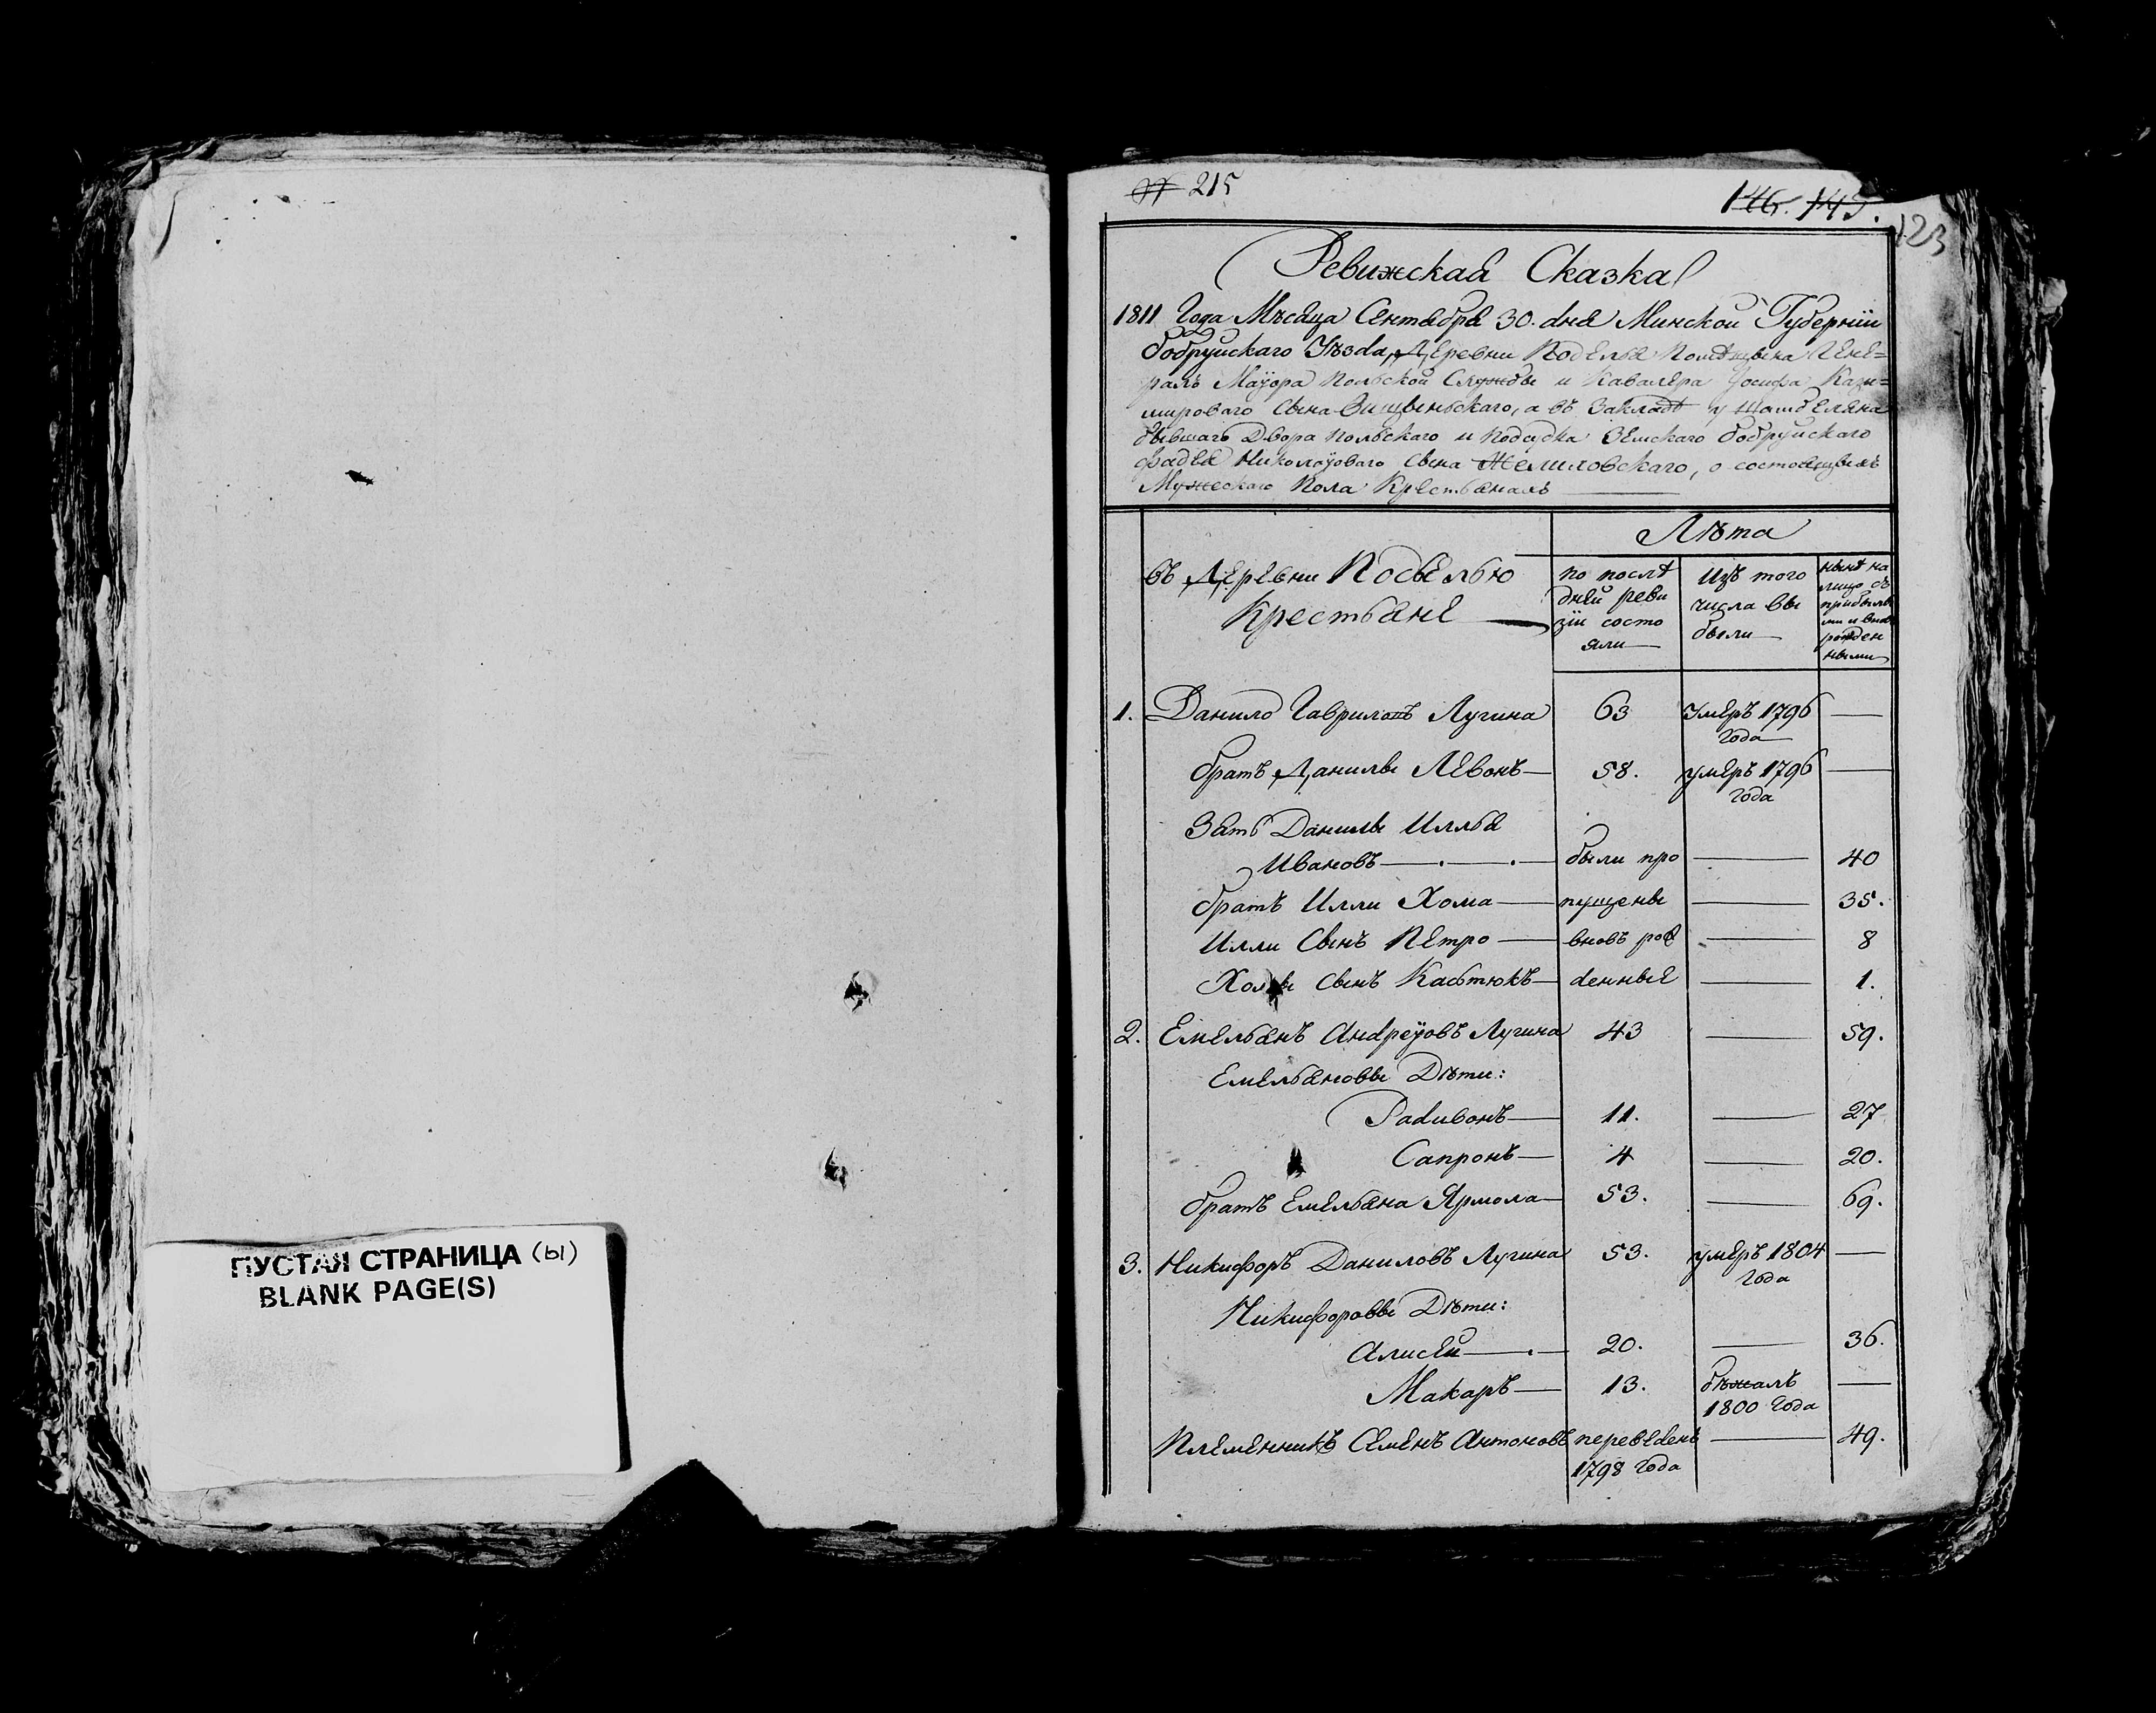 ПУСТАЯ СТРАНИЦА (ы)
BLANK PAGE(S)
215
146. 145.
123
Ревижская Сказка
1811 Года Мѣсяца Сентября 30. дня Минской Губернїи
бобруйскаго Уѣзда, Деревни Подъелья Помѣщика Гене=
ралъ Маїора Польской Службы и Кавалера Іосифа Кази=
мироваго сына Вищыньскаго, а въ Закладѣ у Шамбеляна
бывшаго Двора Польскаго и Подсудка Земскаго бобруйскаго
фадея Николаїоваго сына Жемиловскаго, о состоящихъ
Мужескаго Пола Крестьянахъ
Лѣта
въ Деревни Подъелью
Крестьяне
по послѣ
дней реви
зїи состо
яли
Изъ того
числа вы
были
нынѣ на
лицо съ
прибылы
ми и внов
рожден
ными
1. Данило Гавриловъ Лугина 63 Умеръ 1796 —
Года
братъ Данилы Левонъ — 58. умеръ 1796 —
Года
Зять Данилы Илля
Ивановъ — были про — 40
братъ Илли Хома — пущены — 35.
Илли Сынъ Петро — вновь рож — 8
Хомы сынъ Кастюкъ — денные — 1.
2. Емельянъ Андреїовъ Лугина 43 — 59.
Емельяновы Дѣти:
Радивонъ — 11. — 27
Сапронъ — 4 — 20.
братъ Емельяна Ярмола — 53. — 69.
3. Никифоръ Даниловъ Лугина 53. умеръ 1804 —
Года
Никифоровы Дѣти:
Алисей — 20. — 36.
Макаръ — 13. бѣжалъ —
1800 Года
Племенникъ Семенъ Антоновъ переведенъ — 49.
1798 Года